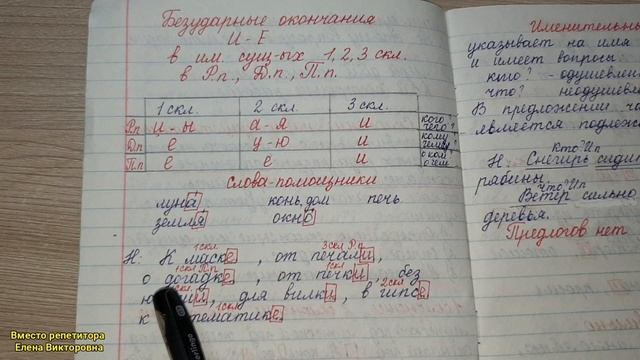 Безударные окончания
И-Е
в им. сущ-ых 1, 2, 3 скл.
в Р.п., Д.п., П.п.
1 скл. 2 скл. 3 скл.
Р.п и - ы а - я и кого? чего?
Д.п е у - ю и кому? чему?
П.п е е и о ком о чём
Слова-помощники
луна конь, дом печь
земля окно
1скл. 3скл Р.п
Н: К маске, от печали,
1скл П.п 1скл
о догадке, от печки, без
скл. 2скл
для вилки, в гипсе
1скл
к тематике.
Именительны
указывает на имя
и имеет вопросы
кого? - одушевлён
что? неодушевлё
В предложении
является подлежа
Кто? И.п
Н: Снегирь сидит
рябины. что? И.п
Ветер сильно
деревья.
Предлогов нет
Вместо репетитора
Елена Викторовна